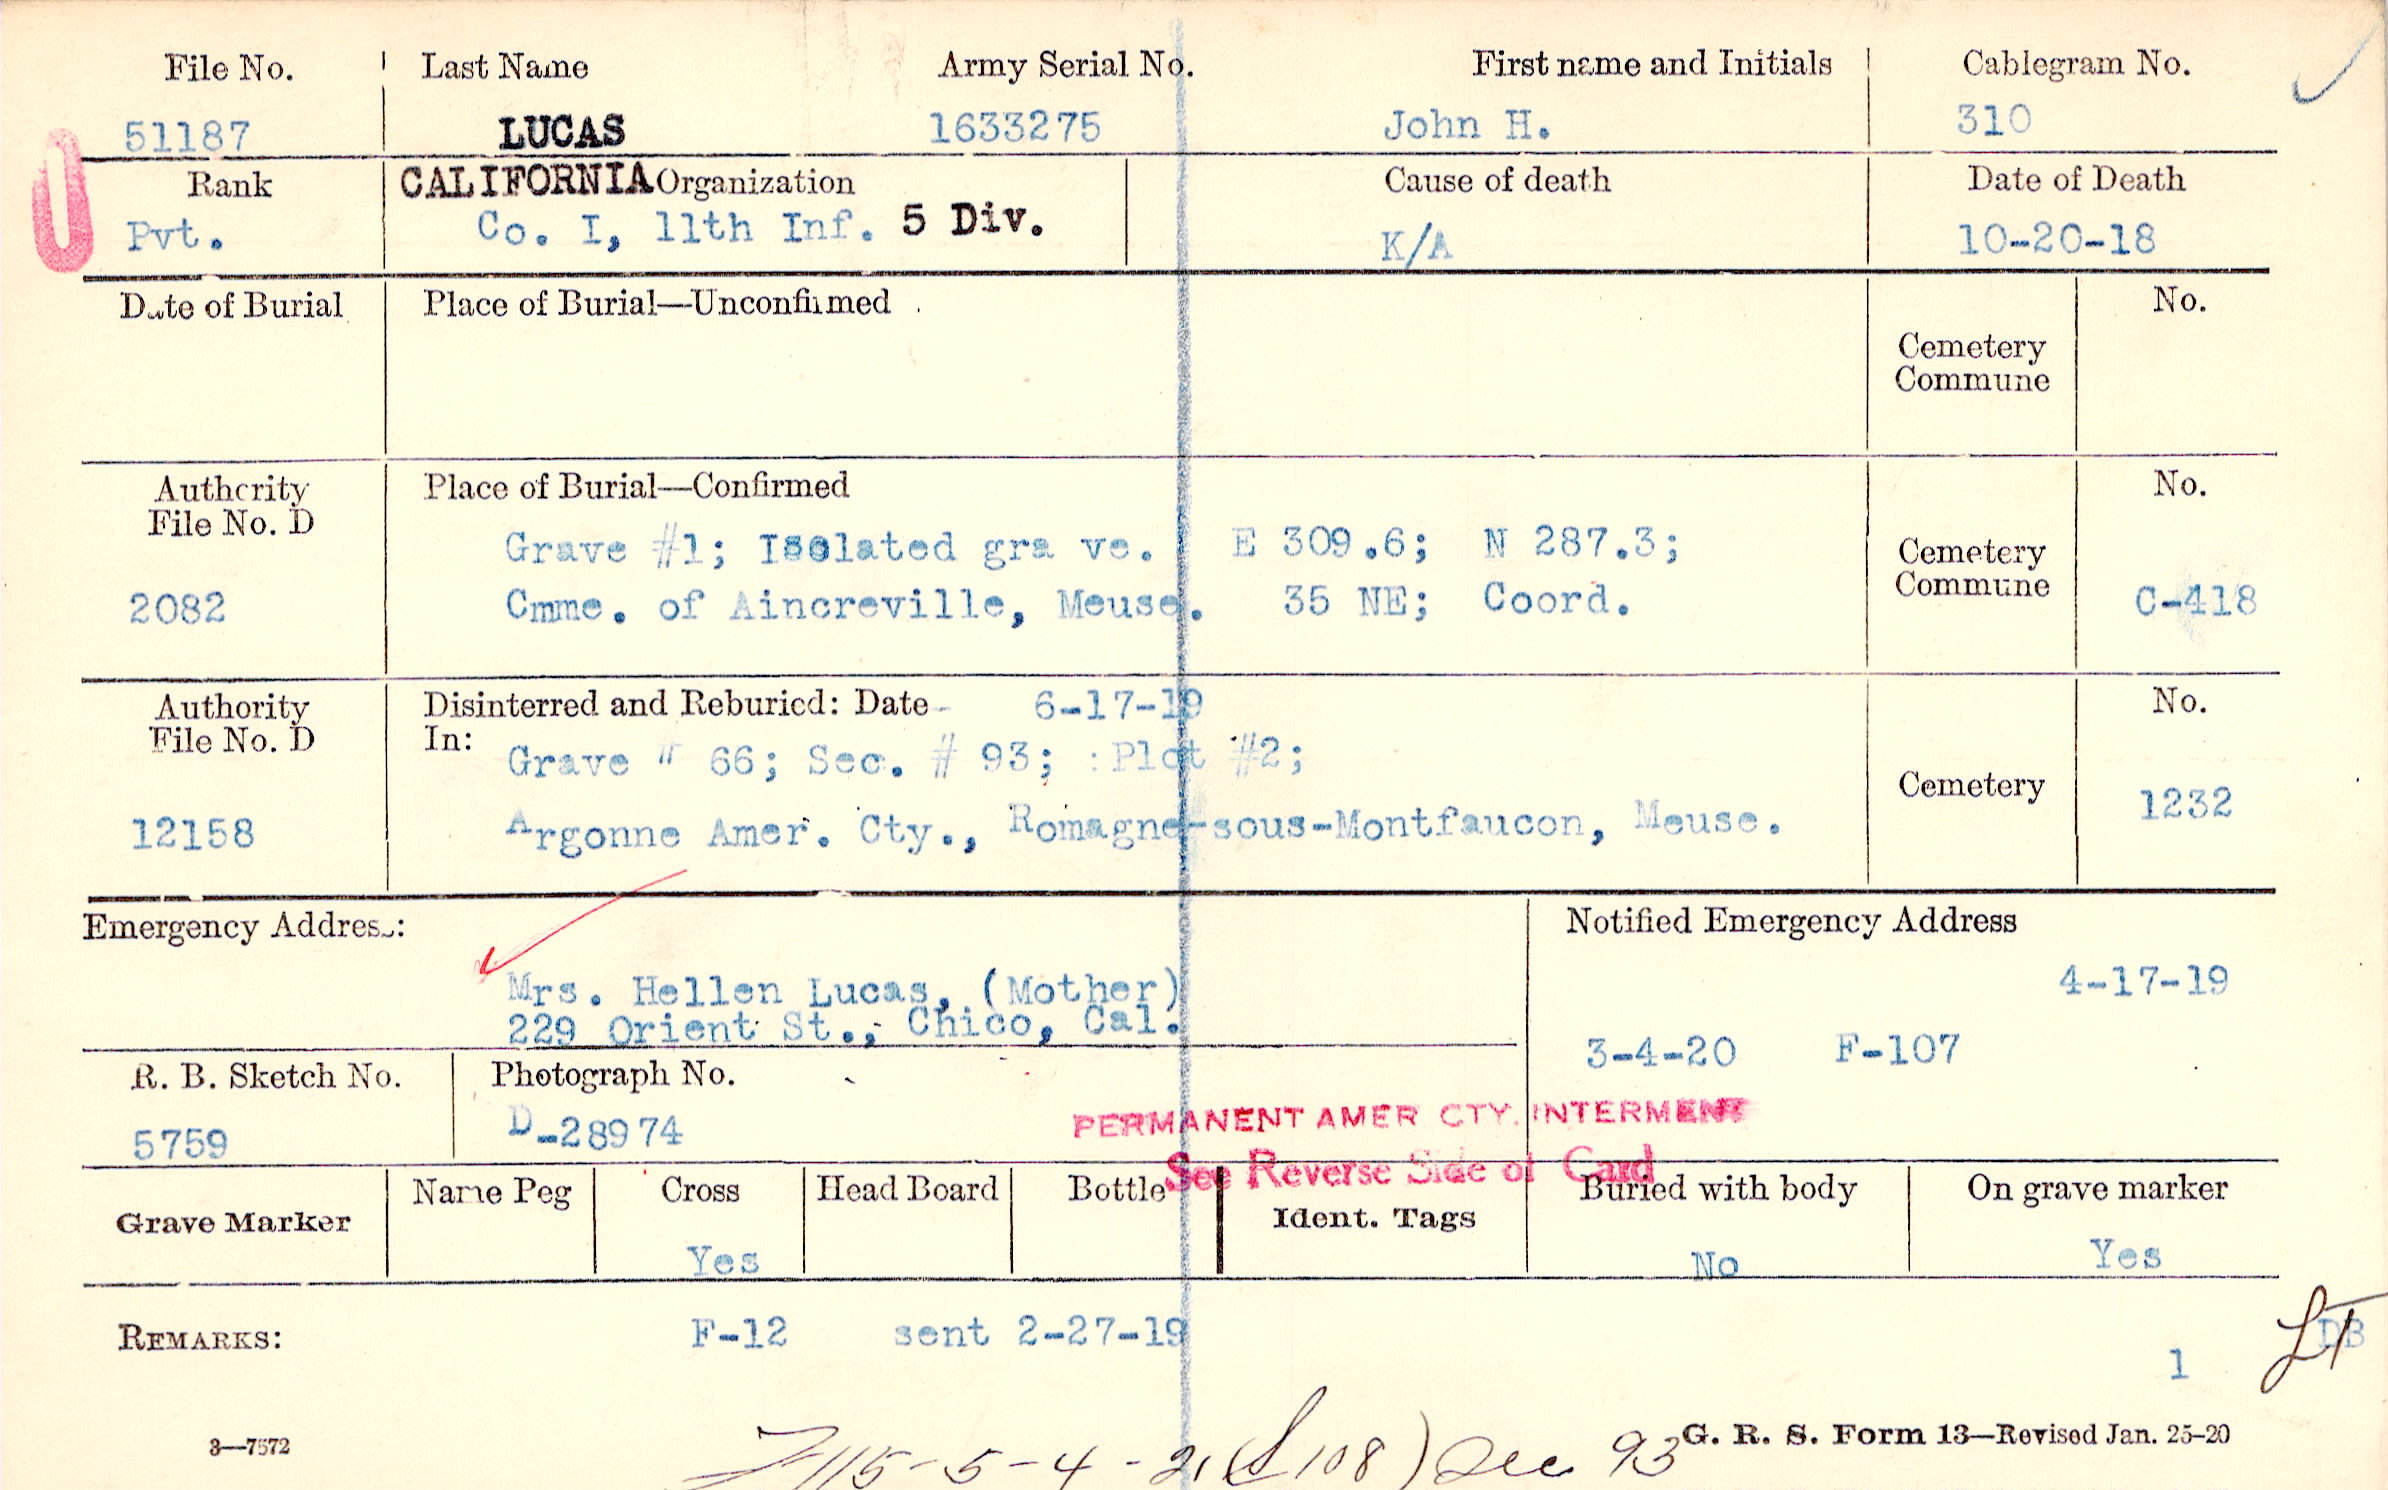 File No. Last Name Army Serial No. First name and Initials Cablegram No.
51187 LUCAS 1633275 John H. 310
Rank CALIFORNIA Organization Cause of death Date of Death
Pvt. Co. I, 11th Inf. 5 Div. K/A 10-20-18
Date of Burial Place of Burial—Unconfirmed No.
Cemetery
Commune
Authority Place of Burial—Confirmed No.
File No. D
Grave #1; Isolated gra ve. E 309.6; N 287.3; Cemetery
2082 Cmme. of Aincreville, Meuse. 35 NE; Coord. Commune C-418
Authority Disinterred and Reburied: Date 6-17-19 No.
File No. D In: Grave # 66; Sec. # 93; :Plot #2;
Cemetery
12158 Argonne Amer. Cty., Romagne-sous-Montfaucon, Meuse. 1232
Emergency Address: Notified Emergency Address
Mrs. Hellen Lucas, (Mother) 4-17-19
229 Orient St., Chico, Cal.
3-4-20 F-107
R. B. Sketch No. Photograph No.
5759 D-28974
PERMANENT AMER CTY. INTERMENT
See Reverse Side of Card
Grave Marker Name Peg Cross Head Board Bottle Ident. Tags Buried with body On grave marker
Yes No Yes
REMARKS: F-12 sent 2-27-19 DB
1
3—7572 G. R. S. Form 13—Revised Jan. 25-20
115-5-4-21 108) Sec 93